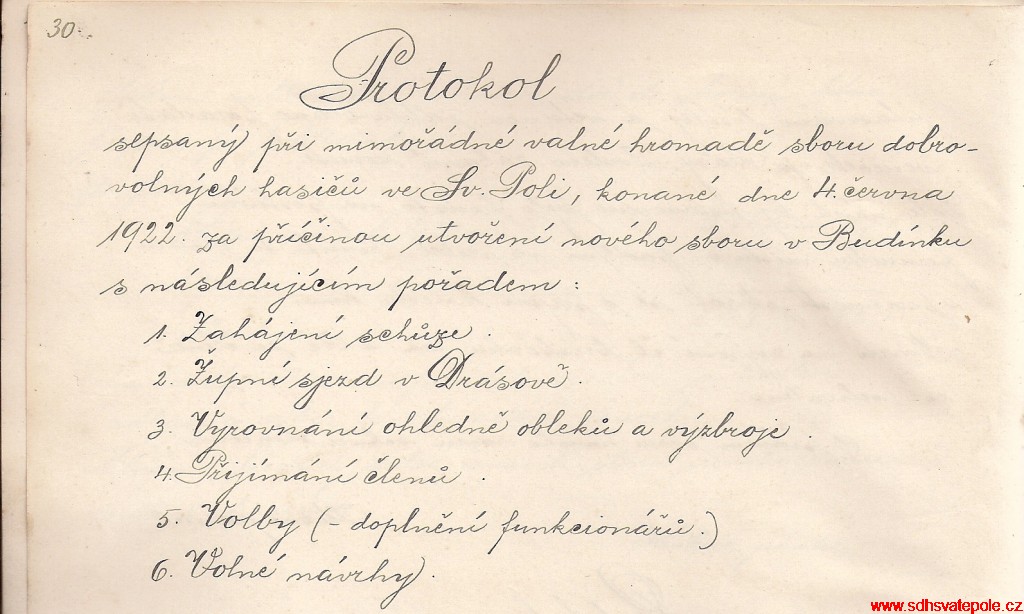 30.
Protokol
sepsaný při mimořádné valné hromadě sboru dobro-
volných hasičů ve Sv. Poli, konané dne 4. června
1922. za příčinou utvoření nového sboru v Budínku
s následujícím pořadem :
1. Zahájení schůze.
2. Župní sjezd v Drásově.
3. Vyrovnání ohledně obleků a výzbroje.
4. Přijímání členů.
5. Volby (- doplnění funkcionářů.)
6. Volné návrhy.
www.sdhsvatepole.cz